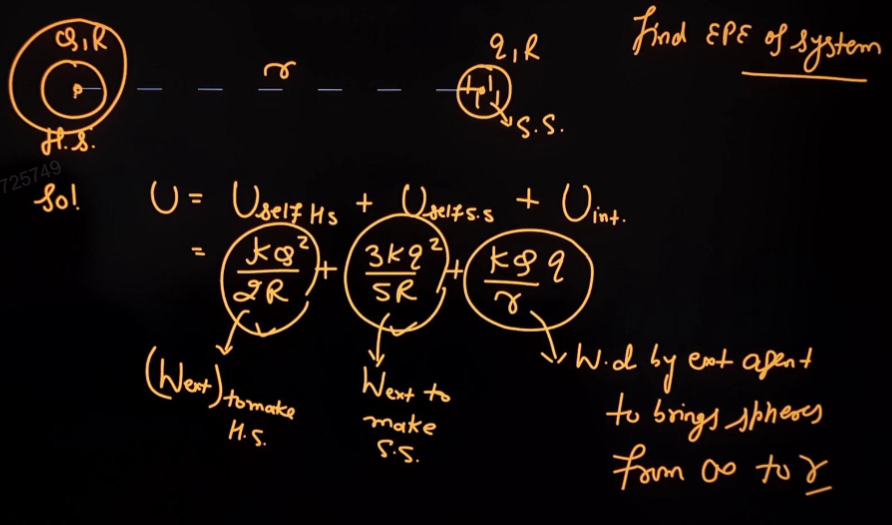 Find EPE of system
Q,R
r
q,R
H.S.
S.S.
725749
Sol
U = U self HS + U self s.s + U int.
= kQ²/2R + 3kq²/5R + kQq/r
(Wext) to make H.S.
Wext to make S.S.
W.d by ext agent
to brings spheres
from ∞ to r